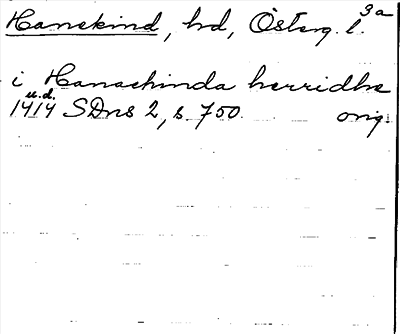 Hanekind, hd, Österg. l. 3a
i Hanachinda herridhe
u.d.
1414 SDns 2, s. 750. orig.